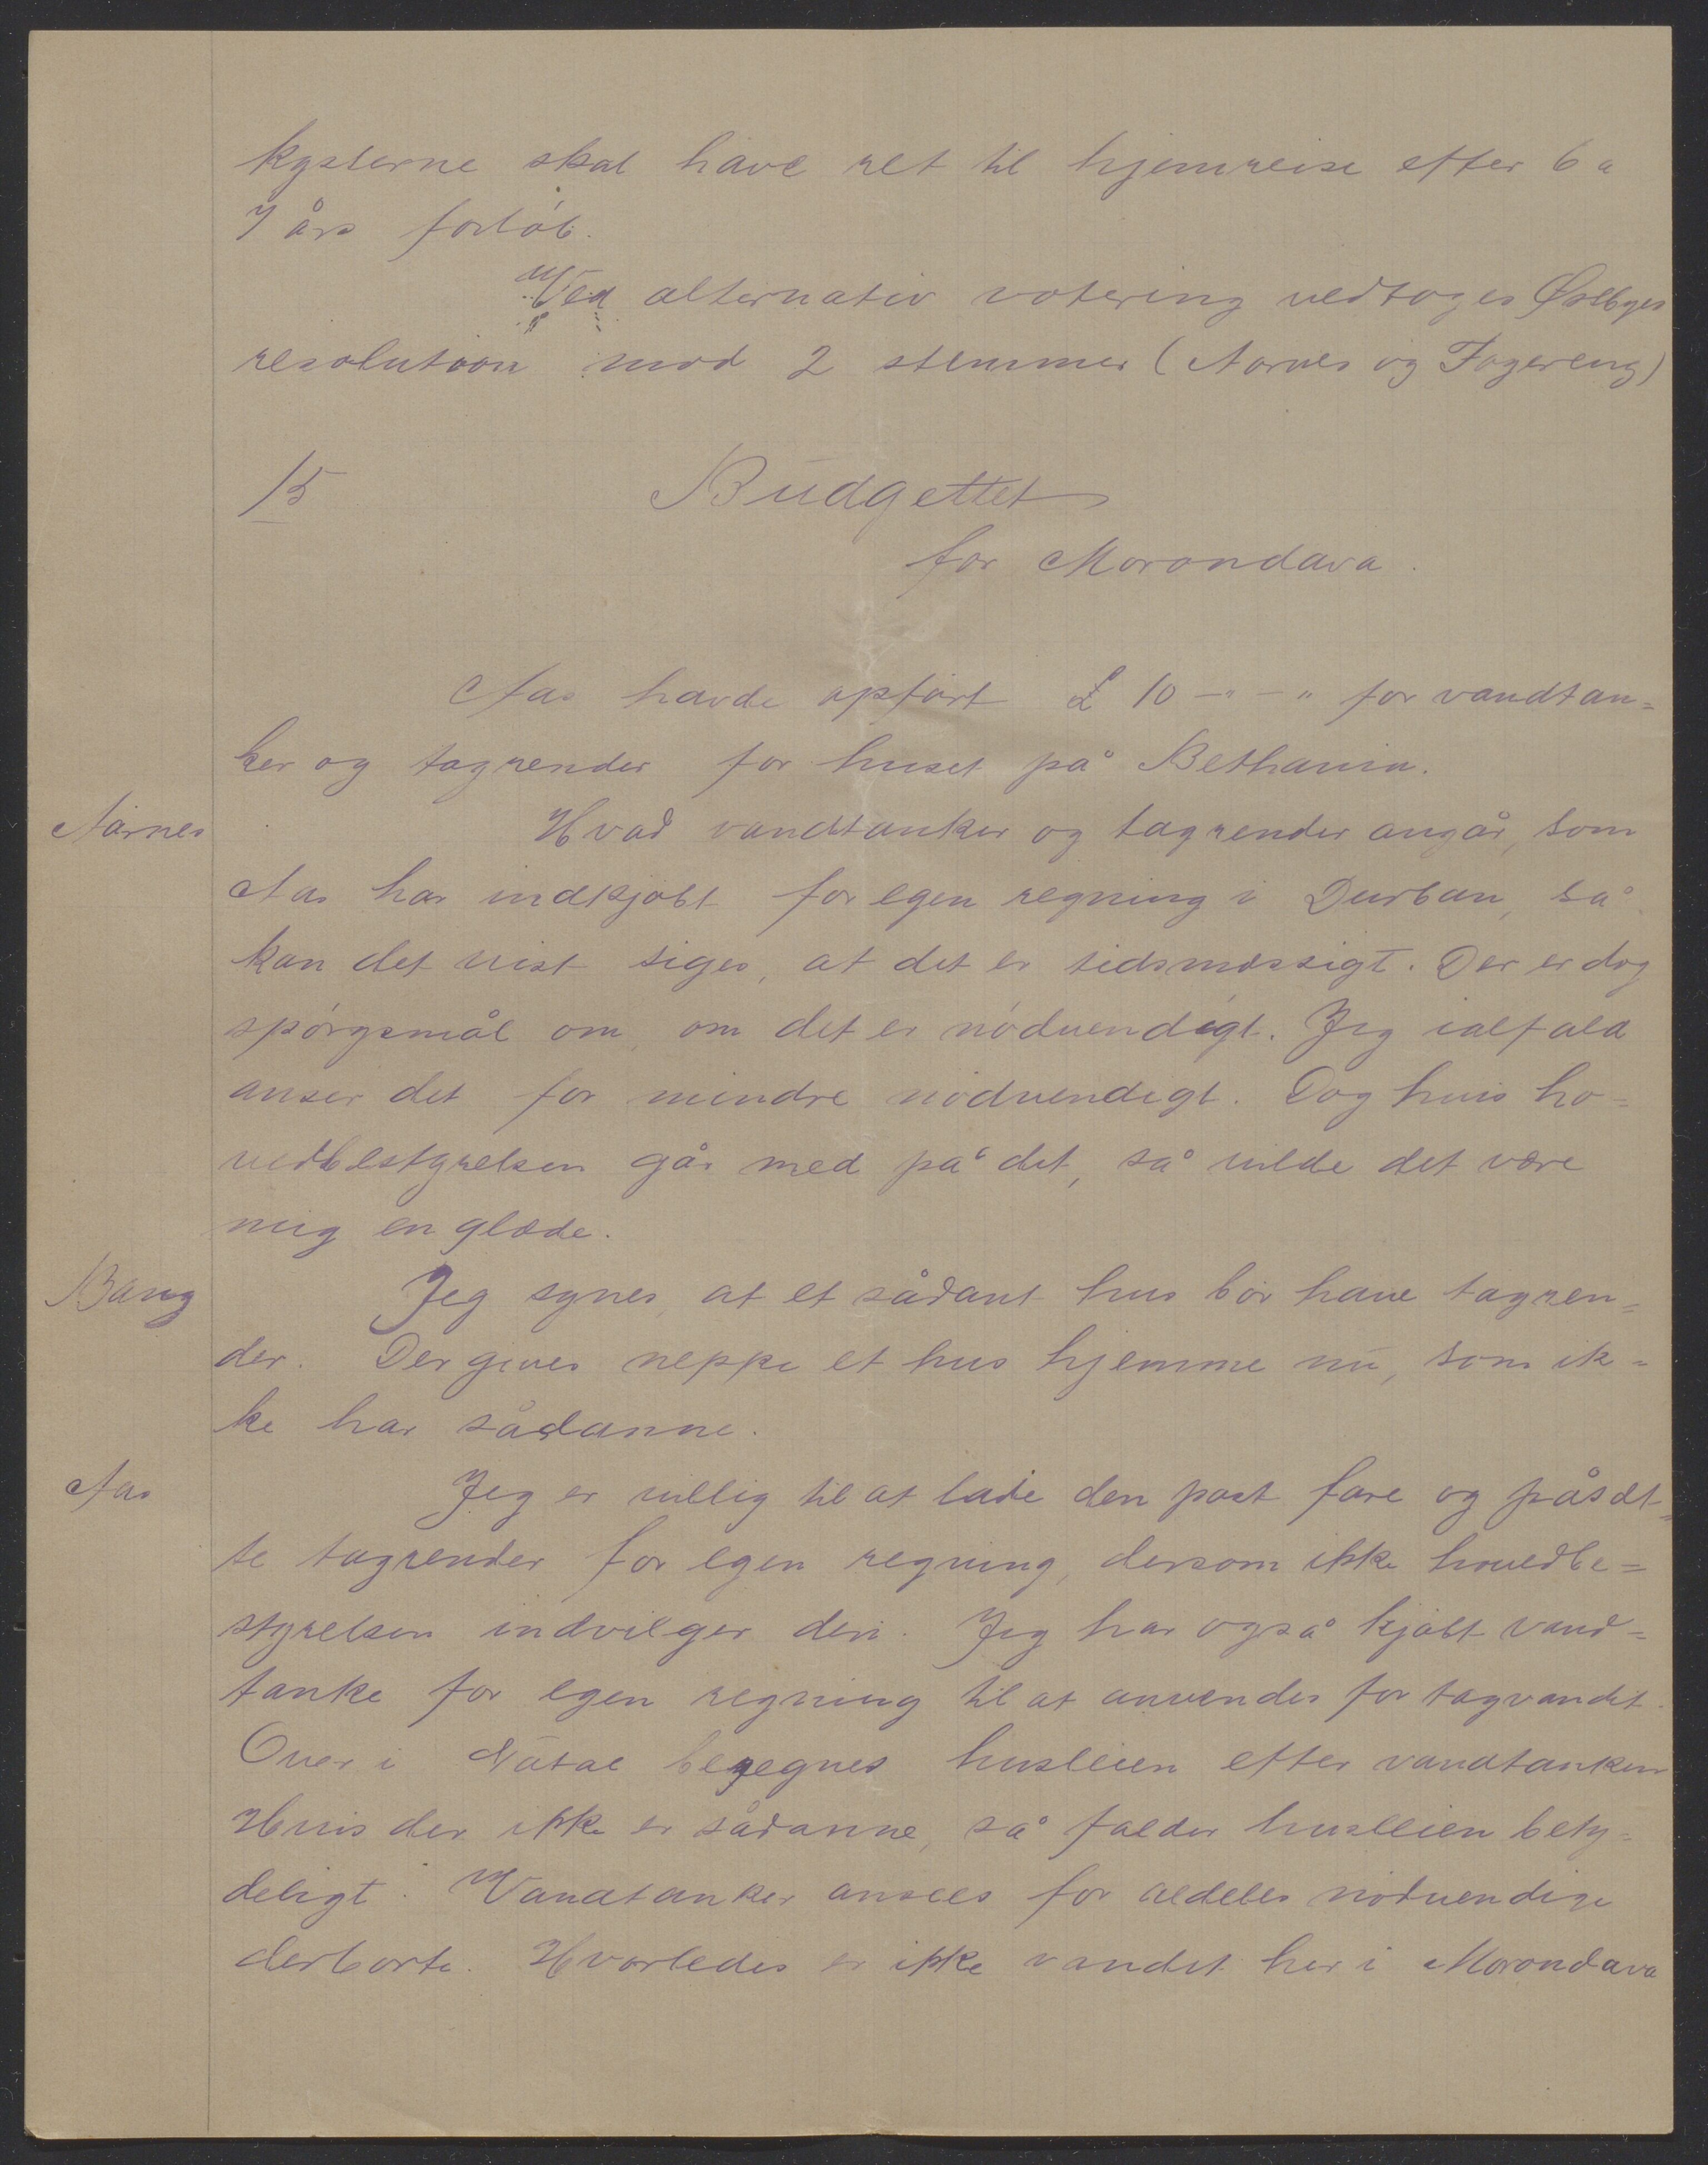 kysterne skal have ret til hjemreise efter 6 a
7 års forløb.
Ved alternativ votering vedtoges Østbyes
resolution mod 2 stemmer (Aarnes og Fagereng)
15 Budgettet
for Morondava.
Aas havde opført £ 10 - " - " for vandtan=
ker og tagrender for huset på Bethania.
Aarnes Hvad vandtanker og tagrender angår, som
Aas har indkjøbt for egen regning i Durban, så
kan det vist siges, at det er tidsmæssigt. Der er dog
spørgsmål om, om det er nødvendigt. Jeg ialfald
anser det for mindre nødvendigt. Dog hvis ho=
vedbestyrelsen går med på det, så vilde det være
mig en glæde.
Bang Jeg synes, at et sådant hus bør have tagren=
der. Der gives neppe et hus hjemme nu, som ik=
ke har sådanne.
Aas Jeg er villig til at lade den post fare og påsæt=
te tagrender for egen regning, dersom ikke hovedbe=
styrelsen indvilger den. Jeg har også kjøbt vand=
tanke for egen regning til at anvendes for tagvandet.
Over i Natal beregnes husleien efter vandtanken
Hvis der ikke er sådanne, så falder husleien bety=
deligt. Vandtanker ansees for aldeles nødvendige
derborte. Hvorledes er ikke vandet her i Morondava